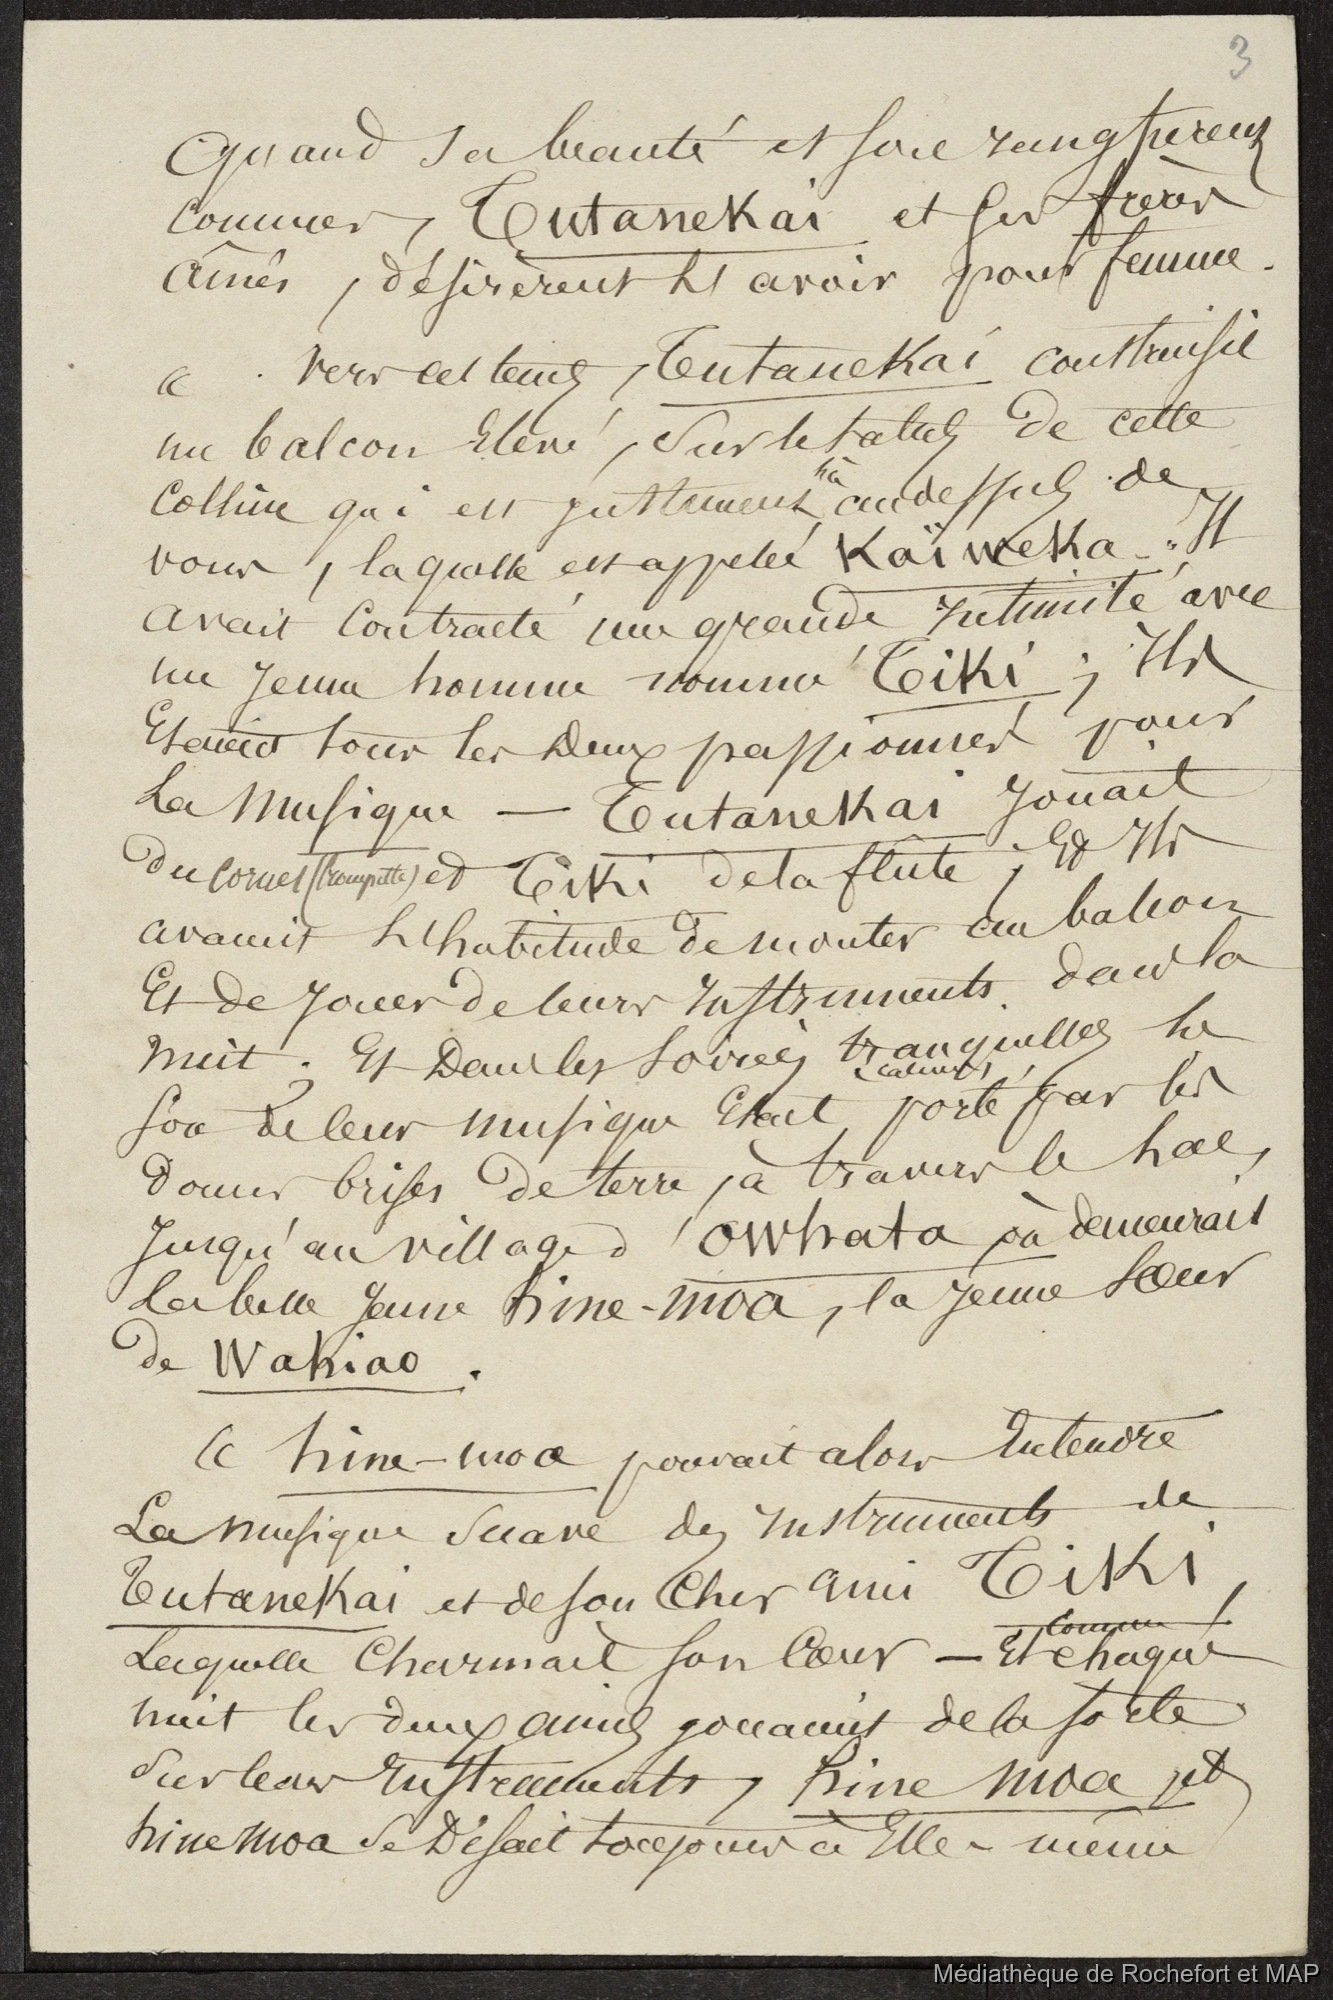 3
Quand sa beauté et son rang furent
connues, Tutanekai et ses frères
aînés, désirèrent l'avoir pour femme.
« Vers cet temps, Tutanekai construisit
un balcon élevé, sur le talus de cette
colline qui est justement là au dessus de
vous, laquelle est appelée Kaïweka. Il
avait contracté une grande intimité avec
un jeune homme nommé Tiki ; Ils
étaient tous les deux passionnés pour
la musique — Tutanekai jouait
du cornet (trompette) et Tiki de la flûte ; Et Ils
avaient l'habitude de monter au balcon
Et de jouer de leurs instruments dans la
nuit ; Et Dans les soirées tranquilles le
calmes
son de leur musique était porté par les
douces brises de terre, à travers le lac,
jusqu'au village d'Owhata où demeurait
la belle jeune hine-moa, la jeune sœur
de Wahiao.
« hine-moa pouvait alors entendre
La musique suave des instruments de
Tutanekai et de son cher ami Tiki,
laquelle charmait son cœur — Et chaque
comme
nuit les deux amis jouaient de la sorte
sur leurs instruments, hine moa et
hine moa se disait toujours à elle-même
Médiathèque de Rochefort et MAP